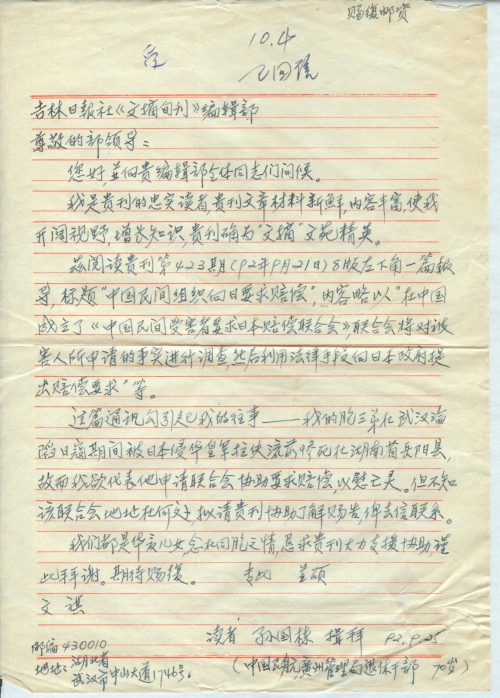 赐复邮资
10.4
已回信
吉林日报社《文摘旬刊》编辑部
尊敬的部领导：
您好，並向贵编辑部全体同志们问候。
我是贵刊的忠实读者，贵刊文章材料新鲜，内容丰富，使我
开阔视野，增长知识，贵刊确为"文摘"文苑精英。
兹阅读贵刊第423期(92年9月21日)8版左下角一篇报
导，标题"中国民间组织向日要求赔偿"，内容略以"在中国
成立了《中国民间受害者要求日本赔偿联合会》，联合会将对被
害人所申请的事实进行调查，然后利用法律手段向日本政府提
出赔偿要求"等。
这篇通讯勾引起我的往事——我的胞三弟在武汉沦
陷日寇期间被日本侵华皇军拉伕流离惨死在湖南省岳阳县，
故而我欲代表他申请联合会协助要求赔偿，以慰亡灵。但不知
该联合会地址在何处，拟请贵刊协助了解赐告，俾去信联系。
我们都是华裔儿女，念在同胞之情，恳求贵刊大力支援协助，谨
此拜谢。期待赐復。 专此 並颂
文祺
读者 孙国栋 揖拜 92.9.25
(中国民航广州管理局退休干部 70岁)
邮编430010
地址：湖北省
武汉市中山大道1746号。